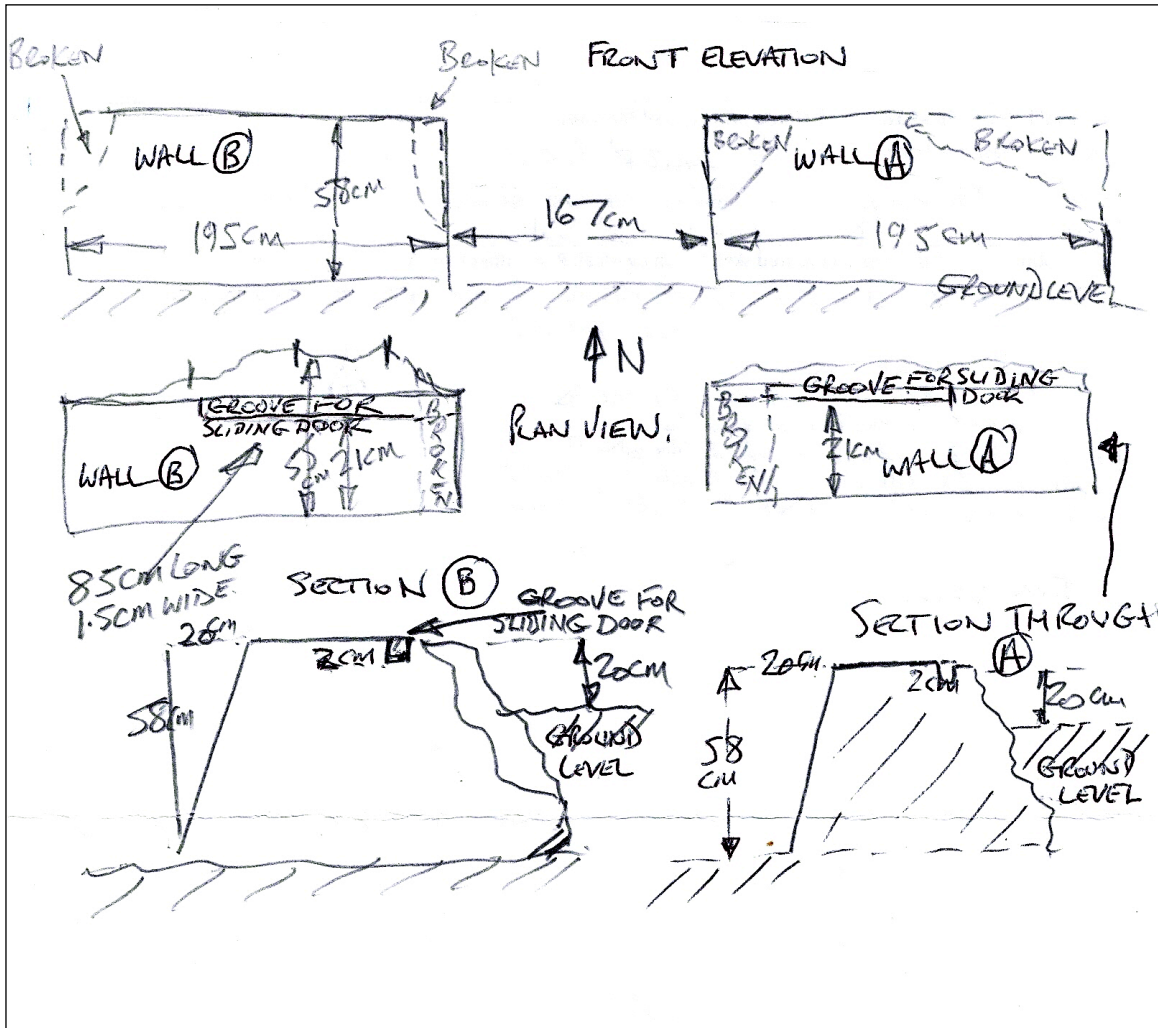 BROKEN
BROKEN FRONT ELEVATION
WALL B
58CM
195CM
167CM
BROKEN
WALL A
BROKEN
195CM
GROUND LEVEL
N
PLAN VIEW.
GROOVE FOR
SLIDING DOOR
WALL B
21CM
BROKEN
GROOVE FOR SLIDING
DOOR
BROKEN
21CM
WALL A
85CM LONG
1.5CM WIDE
SECTION B
GROOVE FOR
SLIDING DOOR
20CM
2CM
20CM
58CM
GROUND
LEVEL
SECTION THROUGH
A
20CM
2CM
20CM
58
CM
GROUND
LEVEL